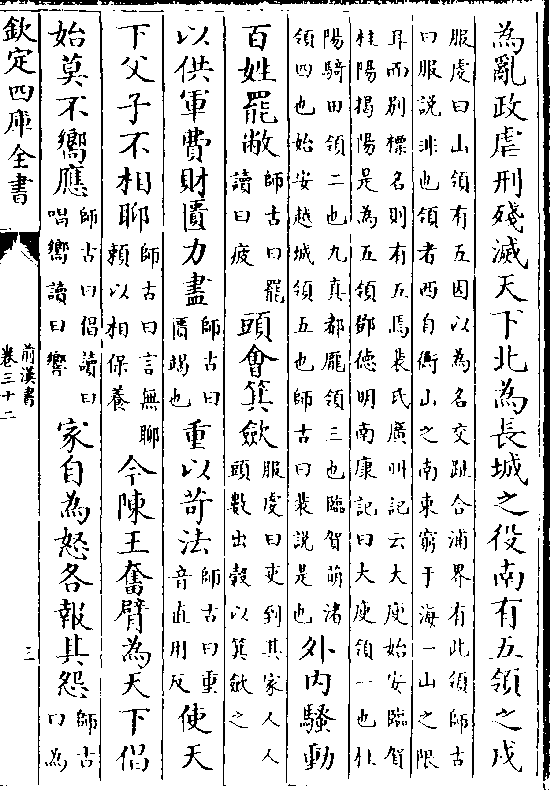 為亂政虐刑殘滅天下北為長城之役南有五領之戍
服虔曰山領有五因以為名交趾合浦界有此領師古
曰服說非也領者西自衡山之南東窮于海一山之限
耳而別標名則有五焉裴氏廣州記云大庾始安臨賀
桂陽揭陽是為五領鄧德明南康記曰大庾領一也桂
陽騎田領二也九真都龐領三也臨賀萌渚
領四也始安越城領五也師古曰裴說是也
外内騷動
百姓罷敝
師古曰罷
讀曰疲
頭會箕斂
服虔曰吏到其家人人
頭數出穀以箕斂之
以供軍費財匱力盡
師古曰
匱竭也
重以苛法
師古曰重
音直用反
使天
下父子不相聊
師古曰言無聊
賴以相保養
今陳王奮臂為天下倡
始莫不嚮應
師古曰倡讀曰
唱嚮讀曰響
家自為怒各報其怨
師古
曰為
欽定四庫全書
前漢書
卷三十二
三